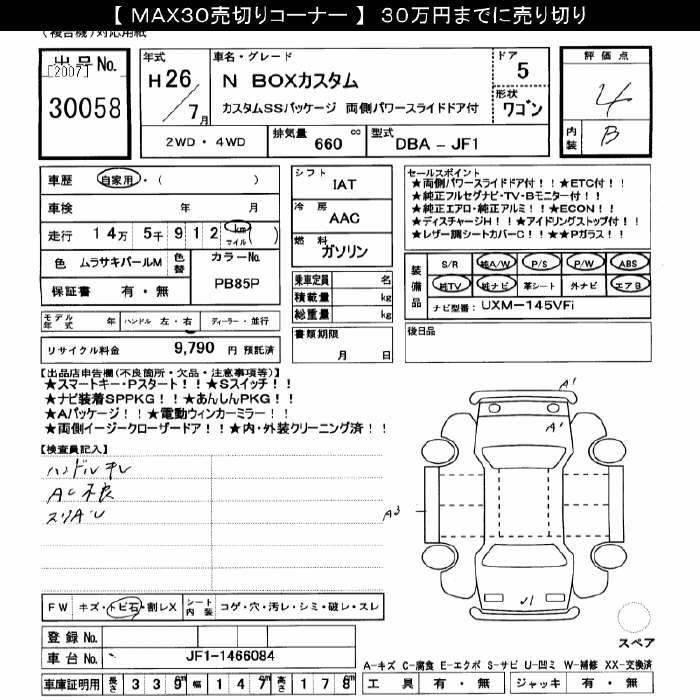 【 MAX30売切りコーナー 】 30万円までに売り切り
(複合機)対応用紙
出品No.
[2007]
30058
年式
H26/7月
車名・グレード
N BOXカスタム
カスタムSSパッケージ 両側パワースライドドア付
ドア
5
形状
ワゴン
2WD・4WD
排気量 660 cc
型式 DBA - JF1
評価点
4
内装 B
車歴 自家用・( )
車検 年 月
走行 14万 5千 9 1 2 km マイル ( )
色 ムラサキパールM 色替 カラーNo.
保証書 有・無 PB85P
モデル年式 年 ハンドル 左・右 ディーラー・並行
リサイクル料金 9,790 円 預託済
シフト IAT
冷房 AAC
燃料 ガソリン
乗車定員 名
積載量 kg
総重量 kg
書類期限
月 日
セールスポイント
★両側パワースライドドア付!!★ETC付!!
★純正フルセグナビ・TV・Bモニター付!!
★純正エアロ・純正アルミ!!★ECON!!
★ディスチャージH!!★アイドリングストップ付!!
★レザー調シートカバーC!!★★Pガラス!!
装備品
S/R 純A/W P/S P/W ABS
純TV 純ナビ 革シート 外ナビ エアB
ナビ型番 UXM-145VFi
後日品
【出品店申告欄(不良箇所・欠品・注意事項等)】
★スマートキー・Pスタート!!★Sスイッチ!!
★ナビ装着SPPKG!!★あんしんPKG!!
★Aパッケージ!!★電動ウィンカーミラー!!
★両側イージークローザードア!!★内・外装クリーニング済!!
【検査員記入】
ハンドルテレ
AC不良
スリA・U
A1
A1
A3
FW キズ・トビ石・割レX シート内装 コゲ・穴・汚レ・シミ・破レ・スレ
登録No.
車台No. JF1-1466084
車庫証明用 長さ 339cm 幅 147cm 高さ 178cm
スペア
A-キズ C-腐食 E-エクボ S-サビ U-凹ミ W-補修 XX-交換済
工具 有・無 ジャッキ 有・無